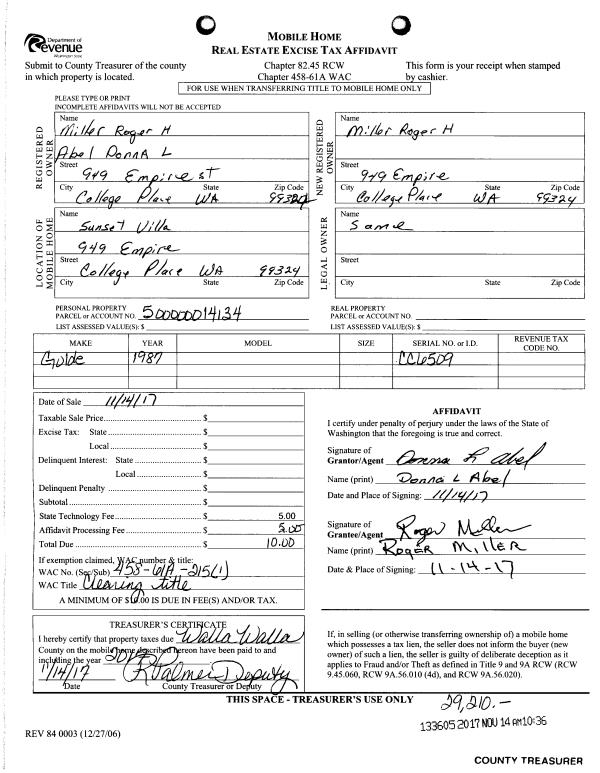 Department of
Revenue
Washington State
MOBILE HOME
REAL ESTATE EXCISE TAX AFFIDAVIT
Submit to County Treasurer of the county
in which property is located.
Chapter 82.45 RCW
Chapter 458-61A WAC
This form is your receipt when stamped
by cashier.
FOR USE WHEN TRANSFERRING TITLE TO MOBILE HOME ONLY
PLEASE TYPE OR PRINT
INCOMPLETE AFFIDAVITS WILL NOT BE ACCEPTED
REGISTERED OWNER
Name
Miller Roger H
Abel Donna L
Street
949 Empire st
City State Zip Code
College Place WA 99324
NEW REGISTERED OWNER
Name
Miller Roger H
Street
949 Empire
City State Zip Code
College Place WA 99324
LOCATION OF MOBILE HOME
Name
Sunset Villa
949 Empire
Street
College Place WA 99324
City State Zip Code
LEGAL OWNER
Name
Same
Street
City State Zip Code
PERSONAL PROPERTY
PARCEL or ACCOUNT NO. 500000014134
LIST ASSESSED VALUE(S): $
REAL PROPERTY
PARCEL or ACCOUNT NO.
LIST ASSESSED VALUE(S): $
MAKE YEAR MODEL SIZE SERIAL NO. or I.D. REVENUE TAX CODE NO.
Gulde 1987 CC6509
Date of Sale 11/14/17
Taxable Sale Price $
Excise Tax: State $
Local $
Delinquent Interest: State $
Local $
Delinquent Penalty $
Subtotal $
State Technology Fee $ 5.00
Affidavit Processing Fee $ 5.00
Total Due $ 10.00
If exemption claimed, WAC number & title:
WAC No. (Sec/Sub) 458-61A-215(1)
WAC Title Clearing title
A MINIMUM OF $10.00 IS DUE IN FEE(S) AND/OR TAX.
AFFIDAVIT
I certify under penalty of perjury under the laws of the State of
Washington that the foregoing is true and correct.
Signature of
Grantor/Agent Donna L Abel
Name (print) Donna L Abel
Date and Place of Signing: 11/14/17
Signature of
Grantee/Agent Roger Miller
Name (print) ROGER MILLER
Date & Place of Signing: 11-14-17
TREASURER'S CERTIFICATE
I hereby certify that property taxes due Walla Walla
County on the mobile home described hereon have been paid to and
including the year
11/14/17 Palmer Deputy
Date County Treasurer or Deputy
If, in selling (or otherwise transferring ownership of) a mobile home
which possesses a tax lien, the seller does not inform the buyer (new
owner) of such a lien, the seller is guilty of deliberate deception as it
applies to Fraud and/or Theft as defined in Title 9 and 9A RCW (RCW
9.45.060, RCW 9A.56.010 (4d), and RCW 9A.56.020).
THIS SPACE - TREASURER'S USE ONLY
29,210.-
133605 2017 NOV 14 AM 10:36
REV 84 0003 (12/27/06)
COUNTY TREASURER